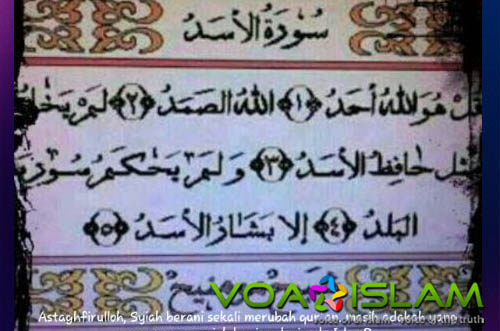 سُورَةُ الأَسَدُ
قُلْ هُوَ اللهُ أَحَدُ ﴿١﴾ اللهُ الصَمَدُ ﴿٢﴾ لَمْ
مثل حَافِظِ الأَسَدُ ﴿٣﴾ وَلَمْ يَحْكُمُ
البَلَدُ ﴿٤﴾ إلا بَشَارُ الأَسَدُ ﴿٥﴾
VOA ISLAM
truth
Astaghfirulloh, Syiah berani sekali merubah qur'an, masih adakah yang